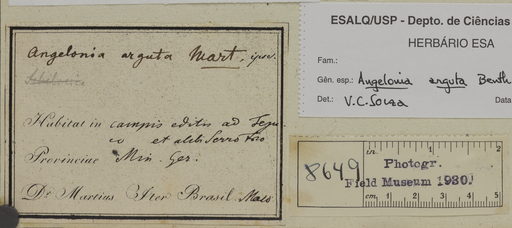 Angelonia arguta Mart.
Habitat in campis editis ad Teju
co et alibi Serro Frio
Provinciae Min. Ger.
Dr Martius Iter Brasil. Maio
ESALQ/USP - Depto. de Ciências
HERBÁRIO ESA
Fam.:
Gên. esp.: Angelonia arguta Benth
Det.: V.C. Souza Data
8649
in. 1 2
Photogr.
Field Museum 1930.
cm. 1 2 3 4 5